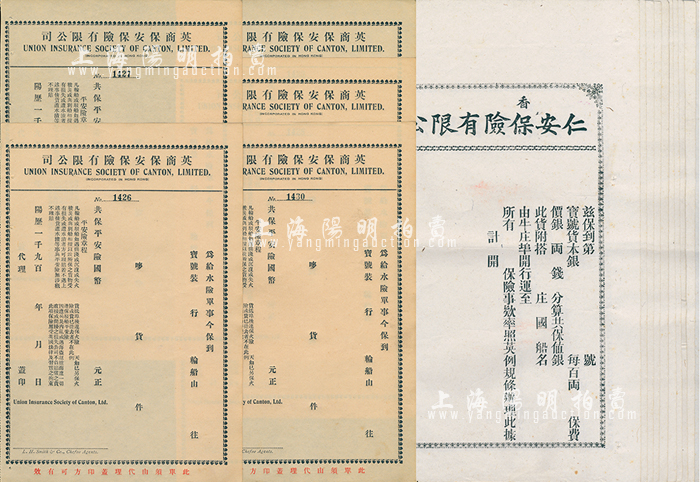 司公限有險保安保商英
UNION INSURANCE SOCIETY OF CANTON, LIMITED.
(INCORPORATED IN HONG KONG)
No. 1427
共保平安
平安險章程
陽歷一千
司公限有險保安保商英
UNION INSURANCE SOCIETY OF CANTON, LIMITED.
(INCORPORATED IN HONG KONG)
RANCE SOCIETY OF CANTON, LIMITED.
(INCORPORATED IN HONG KONG)
司公限有險保安保商英
UNION INSURANCE SOCIETY OF CANTON, LIMITED.
(INCORPORATED IN HONG KONG)
No. 1426
為給水險單事今保到
寶號裝 行 輪船由
嘜 貨 件 往
共保平安險國幣 元正
平安險章程
陽歷一千九百 年 月 日
代理 蓋印
Union Insurance Society of Canton, Ltd.
L. H. Smith & Co., Chefoo Agents.
此單須由代理蓋印方可有效
司公限有險保安保商英
RANCE SOCIETY OF CANTON, LIMITED.
(INCORPORATED IN HONG KONG)
No. 1430
為給水險單事今保到
寶號裝 行 輪船由
嘜 貨 件 往
共保平安險國幣 元正
平安險章程
年 月 日
蓋印
urance Society of Canton, Ltd.
Chefoo Agents.
此單須由代理蓋印方可有效
香
仁安保險有限公
茲保到第 號
寶號貨本銀 每百両 保費
價銀 両 錢 分算共保值銀
此貨附搭 庄 國 船名
由牛庄埠開行運至
所有 保險事欵率照英例規條辦理此據
計開
上海陽明拍賣
yangmingauction.com
上海陽明拍賣
yangmingauction.com
上海陽明拍賣
yangmingauction.com